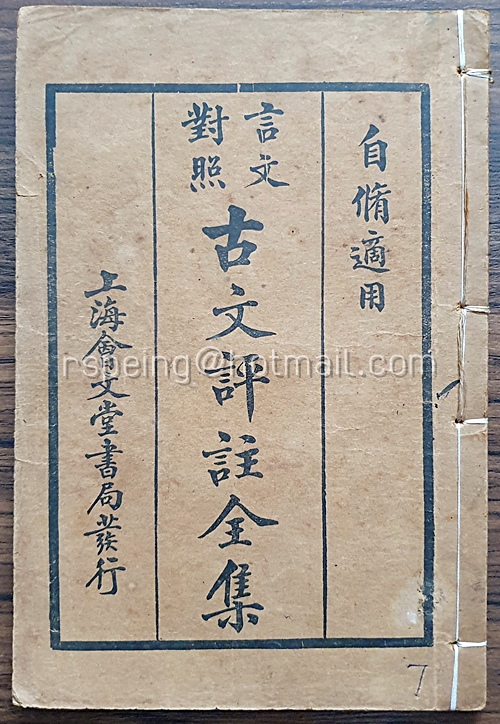 自脩適用
言文
對照
古文評註全集
上海會文堂書局發行
rspeing@hotmail.com
7